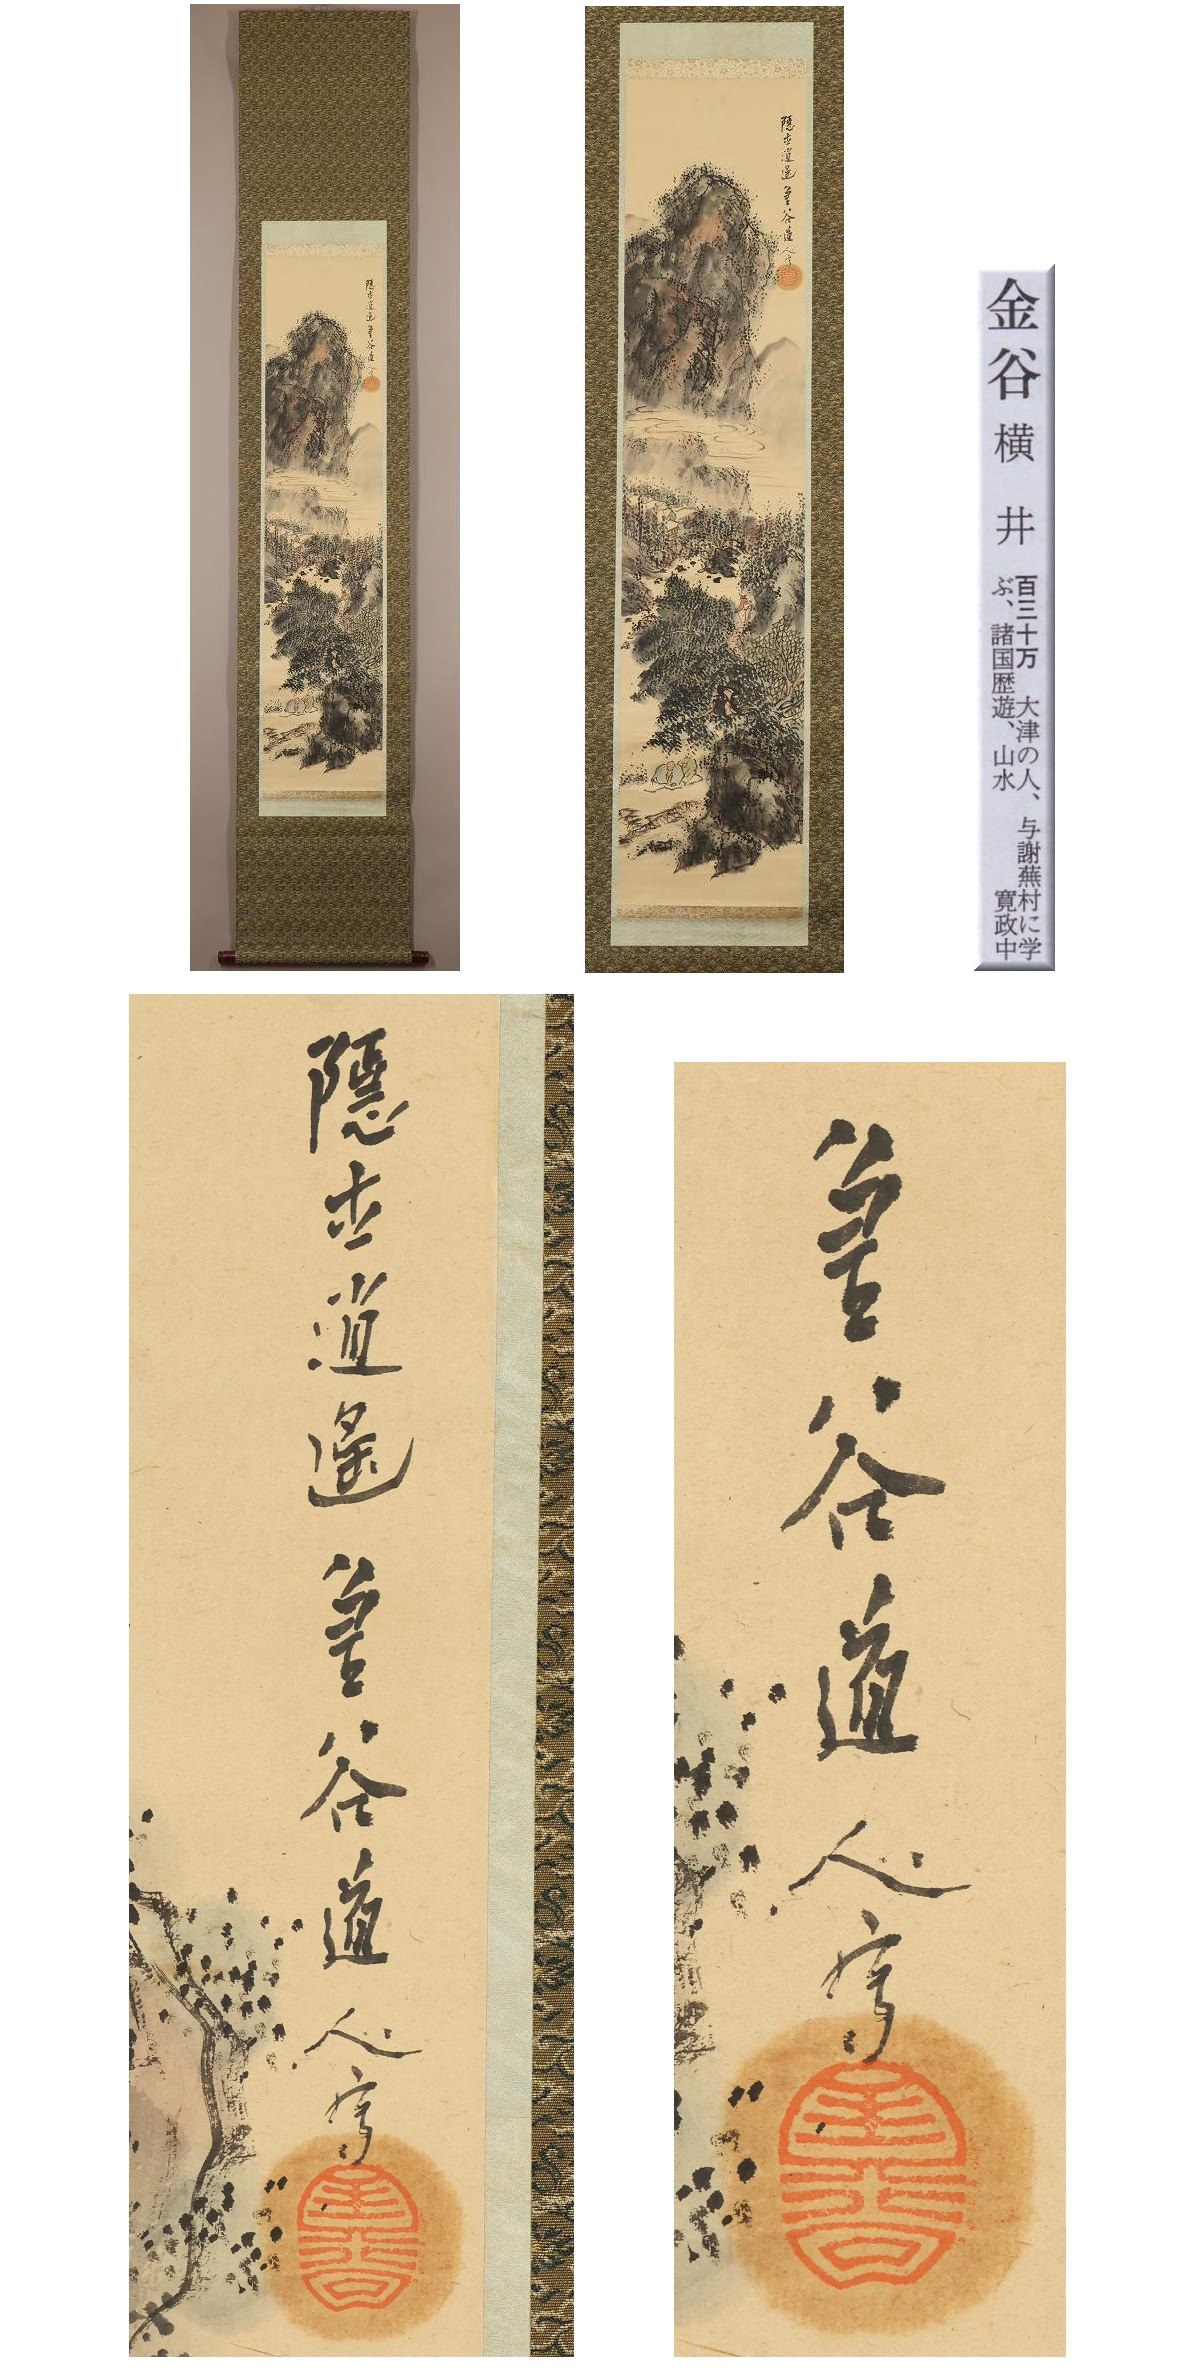 隠士逍遥 金谷道人写
隠士逍遥 金谷道人写
金谷 横井
百三十万 大津の人、与謝蕪村に学
ぶ、諸国歴遊、山水 寛政中
隠士逍遥 金谷道人写
金谷道人写